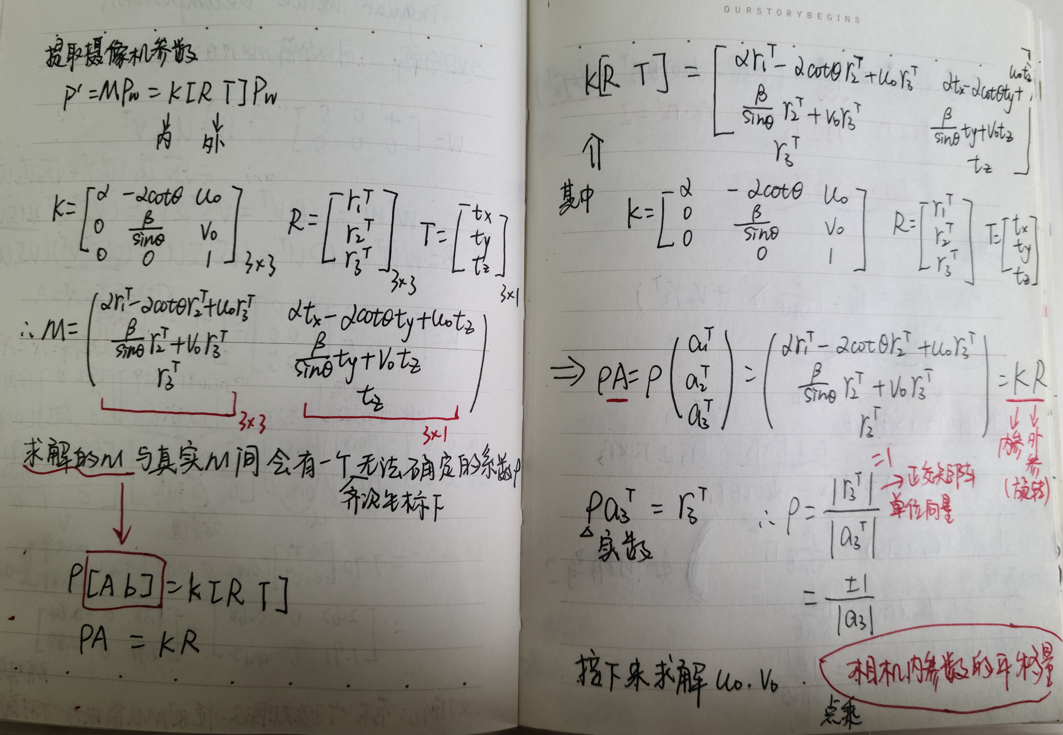 提取摄像机参数
P' = MPw = K[R T]Pw
内 外
K = [α -αcotθ u₀; 0 β/sinθ v₀; 0 0 1]3×3 R = [r₁ᵀ; r₂ᵀ; r₃ᵀ]3×3 T = [tx; ty; tz]3×1
∴ M = (αr₁ᵀ-αcotθr₂ᵀ+u₀r₃ᵀ αtx-αcotθty+u₀tz; β/sinθ r₂ᵀ+v₀r₃ᵀ β/sinθ ty+v₀tz; r₃ᵀ tz)
3×3 3×1
求解的M与真实M间会有一个无法确定的系数ρ
齐次坐标下
ρ[A b] = K[R T]
ρA = KR
OURSTORYBEGINS
K[R T] = [αr₁ᵀ-αcotθr₂ᵀ+u₀r₃ᵀ αtx-αcotθty+u₀tz; β/sinθ r₂ᵀ+v₀r₃ᵀ β/sinθ ty+v₀tz; r₃ᵀ tz]
⇑
其中 K = [α -αcotθ u₀; 0 β/sinθ v₀; 0 0 1] R = [r₁ᵀ; r₂ᵀ; r₃ᵀ] T = [tx; ty; tz]
⇒ ρA = ρ(a₁ᵀ; a₂ᵀ; a₃ᵀ) = (αr₁ᵀ-αcotθr₂ᵀ+u₀r₃ᵀ; β/sinθ r₂ᵀ+v₀r₃ᵀ; r₃ᵀ) = KR
内参 外参(旋转)
ρa₃ᵀ = r₃ᵀ ∴ ρ = |r₃ᵀ|/|a₃ᵀ|
实数
=1 → 正交矩阵
单位向量
= ±1/|a₃|
接下来求解u₀.v₀
相机内参数的平移量
点乘